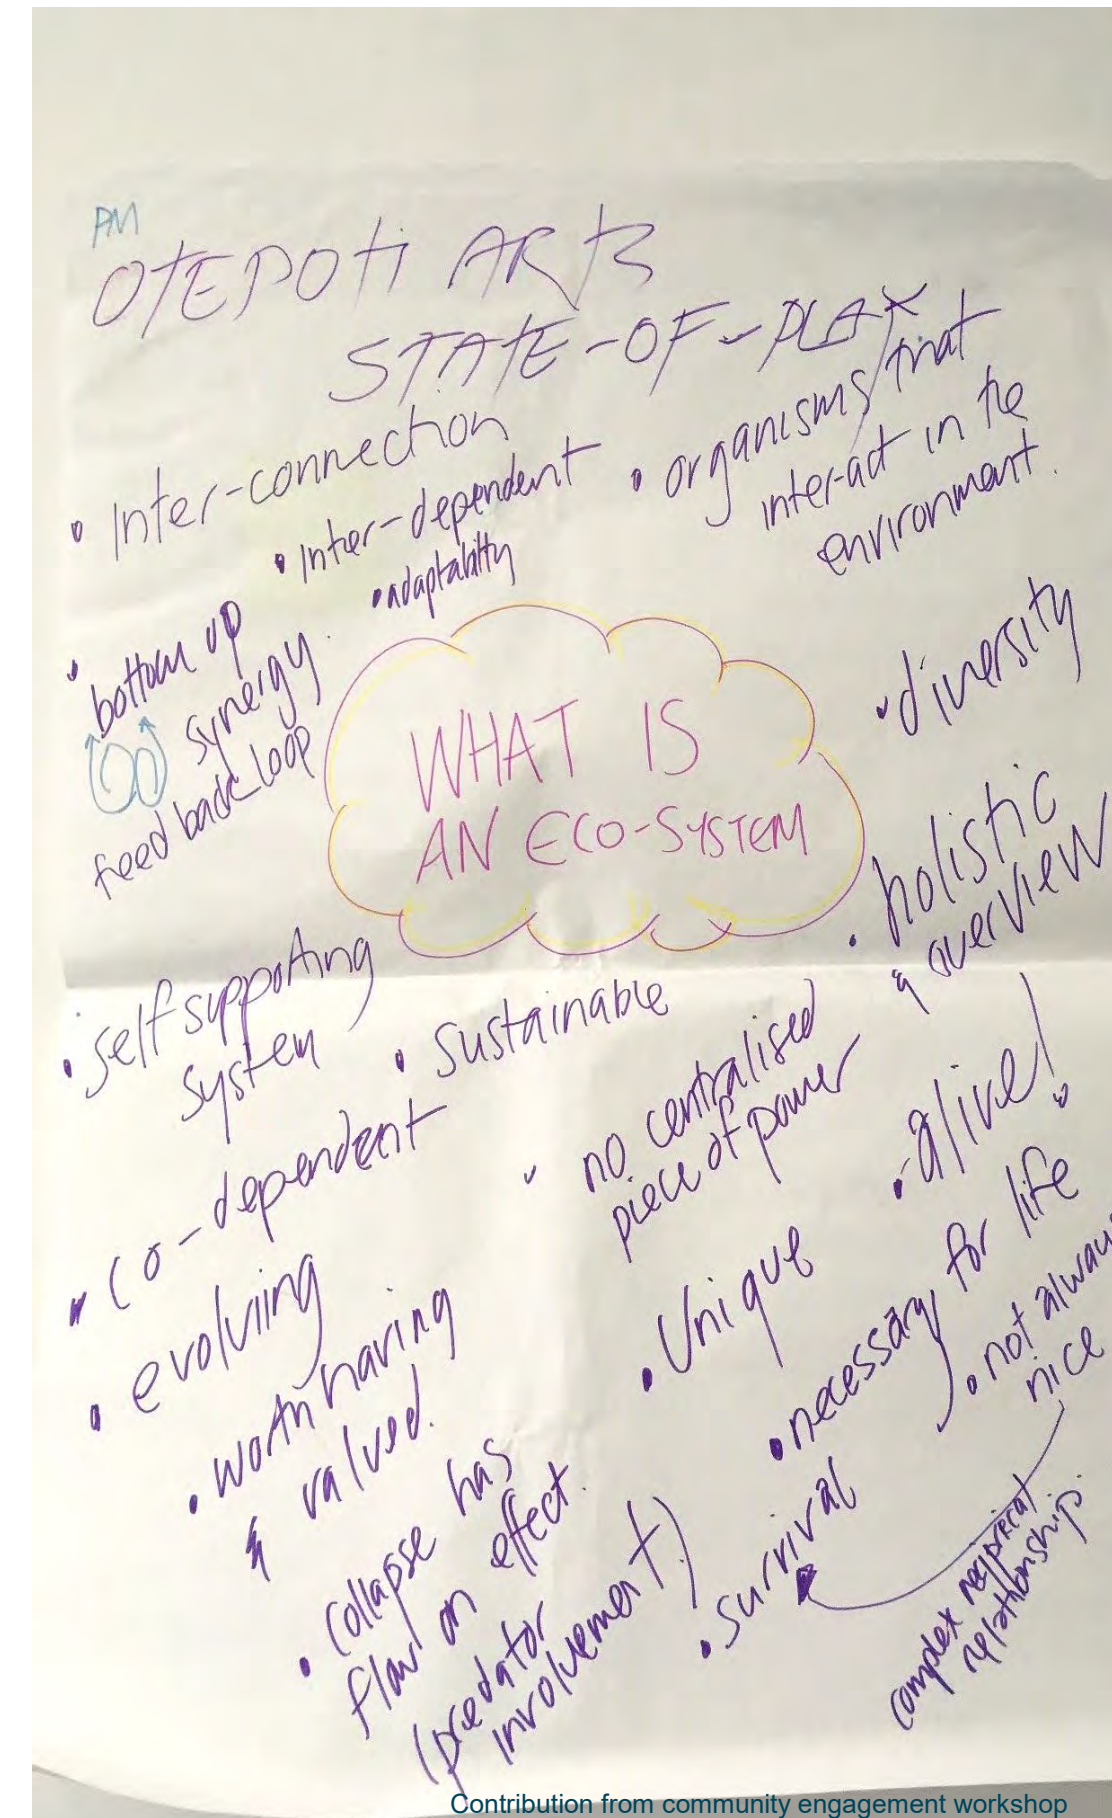 PM
OTEPOTI ARTS
STATE-OF-PLAY
• Inter-connection
• Inter-dependent
• adaptability
• organisms that
inter-act in the
environment.
• bottom up
synergy.
feed back loop
WHAT IS
AN ECO-SYSTEM
• diversity
• holistic
& overview
• self supporting
system
• sustainable
• no centralised
piece of power
• alive!
• co-dependent
• evolving
• worth having
& valued.
• Unique
• necessary for life
• not always
nice
• collapse has
flow on effect.
(predator
involvement)
• survival
complex reciprocal
relationships.
Contribution from community engagement workshop